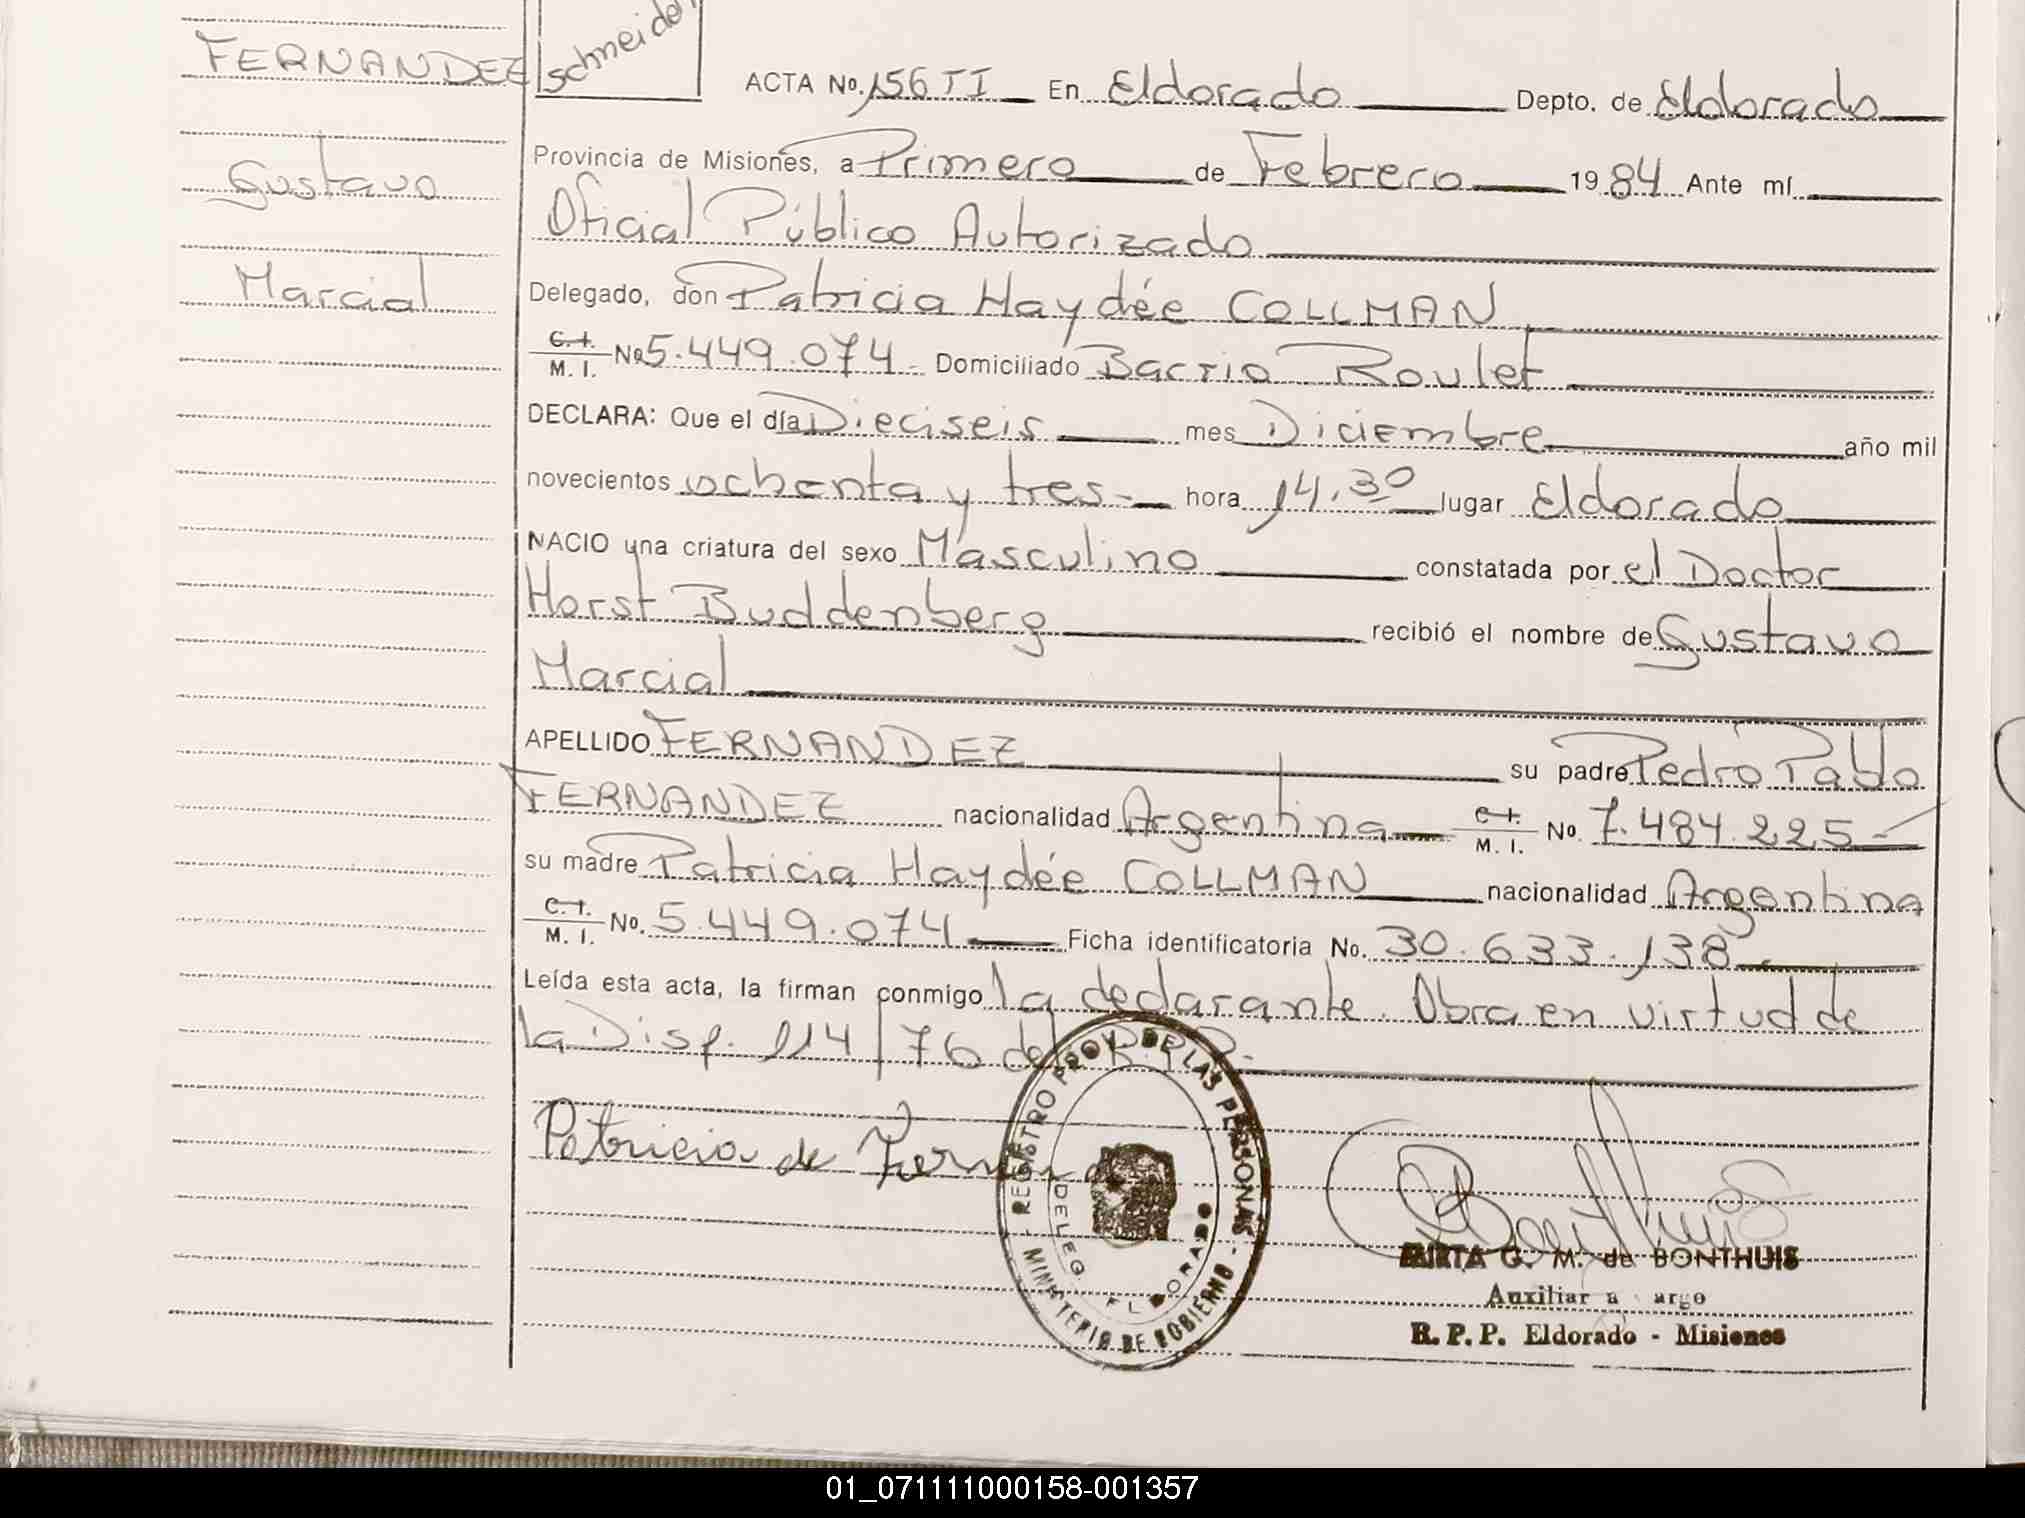 FERNANDEZ
Gustavo
Marcial
Schneider
ACTA No. 156 TI En Eldorado Depto. de Eldorado
Provincia de Misiones, a Primero de Febrero 1984 Ante mí
Oficial Público Autorizado
Delegado, don Patricia Haydée COLLMAN
C. I. M. I. No 5.449.074 Domiciliado Barrio Roulet
DECLARA: Que el día Dieciseis mes Diciembre año mil
novecientos ochenta y tres- hora 14.30 lugar Eldorado
NACIO una criatura del sexo Masculino constatada por el Doctor
Horst Buddenberg recibió el nombre de Gustavo
Marcial
APELLIDO FERNANDEZ su padre Pedro Pablo
FERNANDEZ nacionalidad Argentina C. I. M. I. No. 7.484.225-
su madre Patricia Haydée COLLMAN nacionalidad Argentina
C. I. M. I. No. 5.449.074 Ficha identificatoria No. 30.633.138-
Leída esta acta, la firman conmigo la declarante. Obra en virtud de
la Disp. 114/76 del R.P.P.
Patricia de
REGISTRO PROV. DE LAS PERSONAS - MINISTERIO DE GOBIERNO -
DELEG. ELDORADO
MIRTA G. M. de BONTHUIS
Auxiliar a cargo
R. P. P. Eldorado - Misiones
01_071111000158-001357